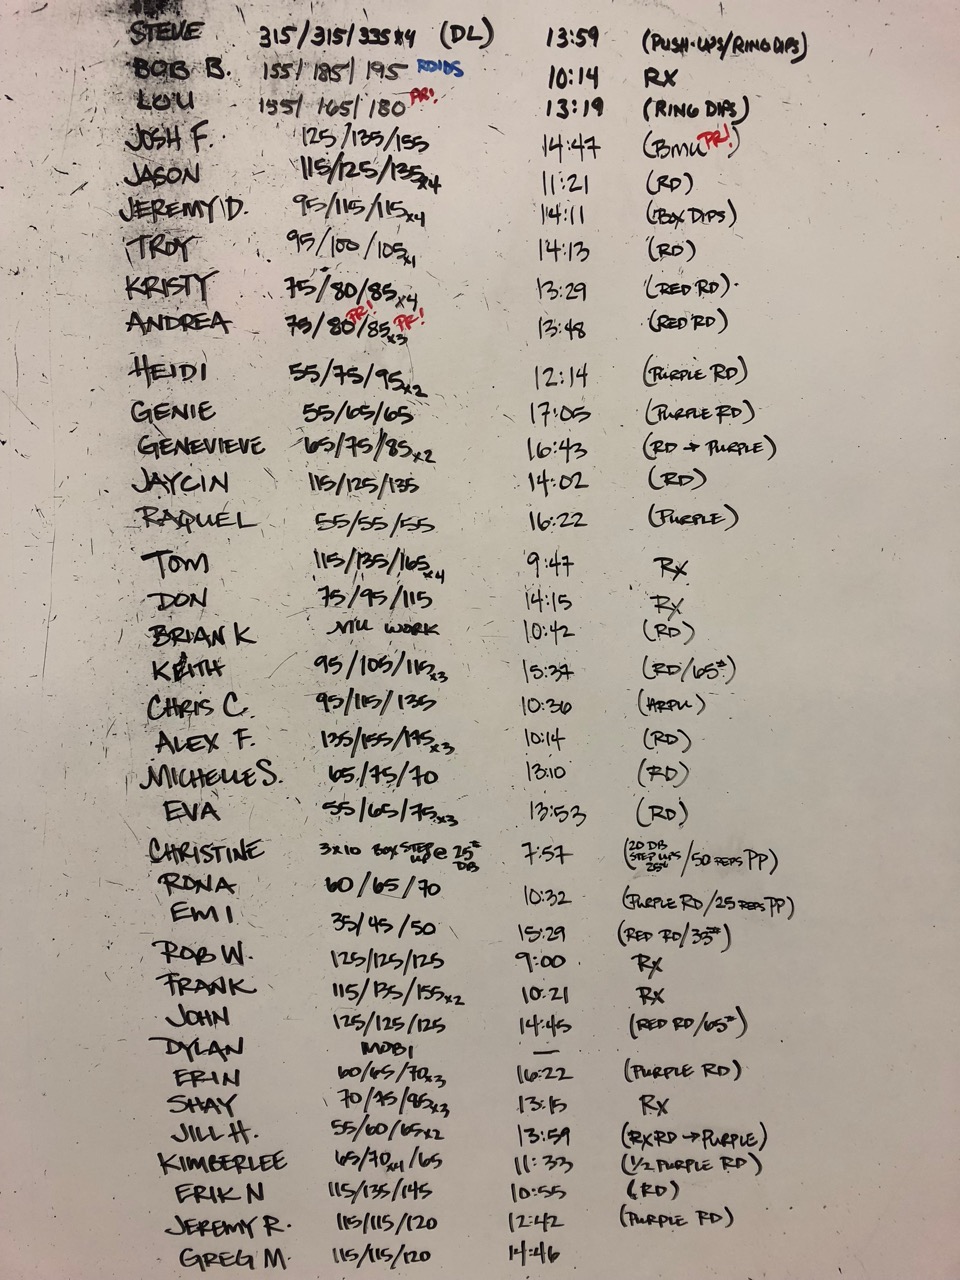 STEVE 315/315/335x4 (DL) 13:59 (PUSH-UPS/RING DIPS)
BOB B. 155/185/195 ROIDS 10:14 RX
LOU 155/165/180 PR! 13:19 (RING DIPS)
JOSH F. 125/135/155 14:47 (BMU PR!)
JASON 115/125/135x4 11:21 (RD)
JEREMY D. 95/115/115x4 14:11 (BOX DIPS)
TROY 95/100/105x4 14:13 (RD)
KRISTY 75/80/85x4 13:29 (RED RD)
ANDREA 75/80 PR!/85x3 PR! 13:48 (RED RD)
HEIDI 55/75/95x2 12:14 (PURPLE RD)
GENIE 55/65/65 17:05 (PURPLE RD)
GENEVIEVE 65/75/85x2 16:43 (RD → PURPLE)
JAYCIN 115/125/135 14:02 (RD)
RAQUEL 55/55/55 16:22 (PURPLE)
TOM 115/135/165x4 9:47 Rx
DON 75/95/115 14:15 Rx
BRIAN K WORK 10:42 (RD)
KEITH 95/105/115x3 15:37 (RD/65#)
CHRIS C. 95/115/135 10:36 (HRPU)
ALEX F. 135/155/175x3 10:14 (RD)
MICHELLE S. 65/75/70 13:10 (RD)
EVA 55/65/75x3 13:53 (RD)
CHRISTINE 3x10 BOX STEP UP @ 25# DB 7:57 (20 DB STEP UPS 25#/50 REPS PP)
RONA 60/65/70 10:32 (PURPLE RD/25 REPS PP)
EMI 35/45/50 15:29 (RED RD/35#)
ROB W. 125/125/125 9:00 Rx
FRANK 115/135/155x2 10:21 Rx
JOHN 125/125/125 14:45 (RED RD/65#)
DYLAN MOBI —
ERIN 60/65/70x3 16:22 (PURPLE RD)
SHAY 70/75/85x3 13:15 Rx
JILL H. 55/60/65x2 13:59 (RX RD → PURPLE)
KIMBERLEE 65/70x4/65 11:33 (1/2 PURPLE RD)
ERIK N 115/135/145 10:55 (RD)
JEREMY R. 115/115/120 12:42 (PURPLE RD)
GREG M. 115/115/120 14:46